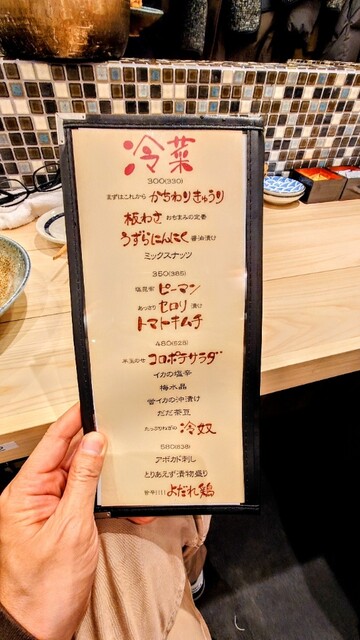 冷菜
300(330)
まずはこれから かちわりきゅうり
板わさ おつまみの定番
うずらにんにく 醤油漬け
ミックスナッツ
350(385)
塩昆布 ピーマン
あっさり セロリ 漬け
トマトキムチ
480(528)
水玉のせ コロポテサラダ
イカの塩辛
梅水晶
蛍イカの沖漬け
だだ茶豆
たっぷりねぎの 冷奴
580(638)
アボカド刺し
とりあえず漬物盛り
よだれ鶏